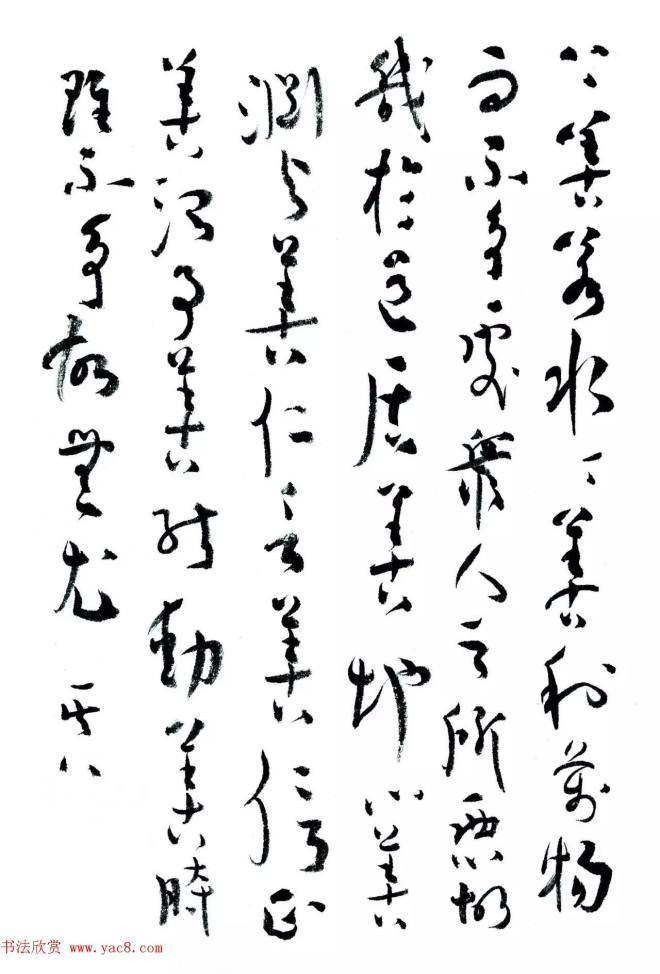 上善若水〻善利萬物
而不爭處衆人之所惡故
幾於道居善地心善
淵與善仁言善信正
善治事善能動善時
唯不爭故無尤 其八
书法欣赏 www.yac8.com